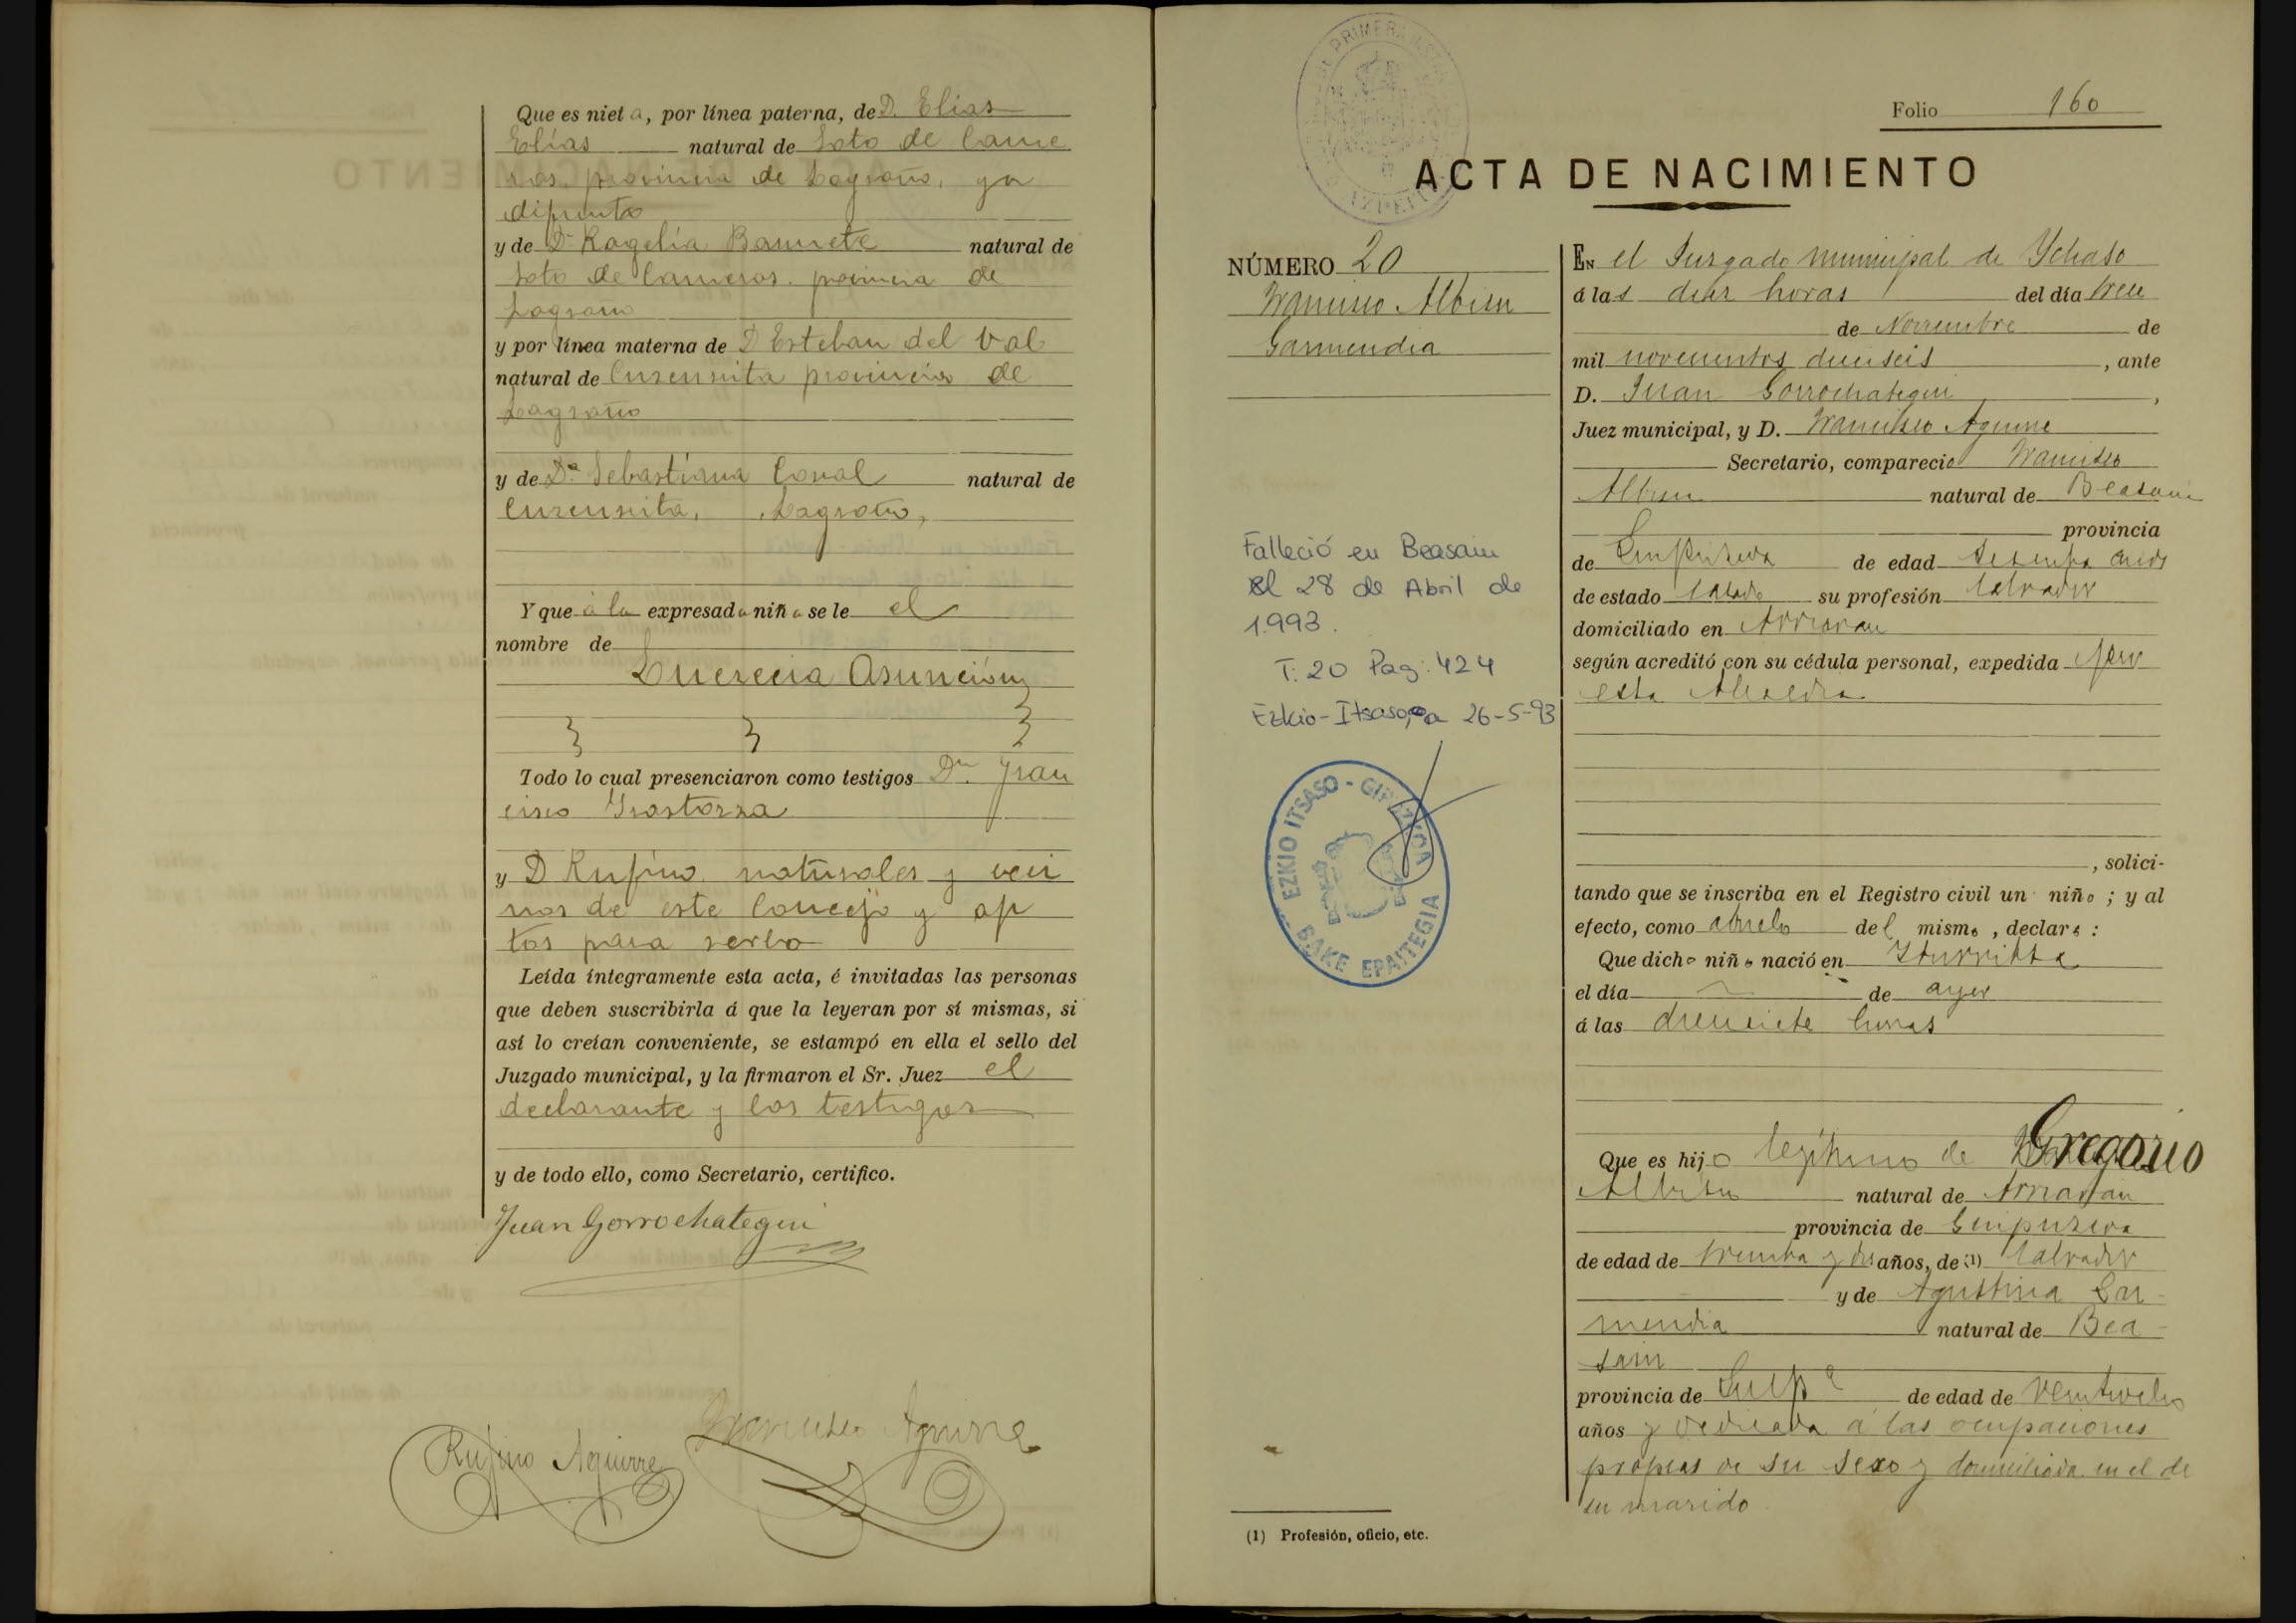 Que es nieta, por línea paterna, de D. Elías
Elías natural de Soto de Came
ros, provincia de Logroño, ya
difunto
y de Dª Rogelia natural de
Soto de Cameros. provincia de
Logroño
y por línea materna de D Esteban del Val
natural de provincia de
Logroño
y de Dª Sebastiana natural de
Logroño,
Y que á la expresada niña se le el
nombre de
Lucrecia Asunción
Todo lo cual presenciaron como testigos Dn. Fran
cisco Irastorza
y D Rufino naturales y veci
nos de este Concejo y ap
tos para serlo
Leída íntegramente esta acta, é invitadas las personas
que deben suscribirla á que la leyeran por sí mismas, si
así lo creían conveniente, se estampó en ella el sello del
Juzgado municipal, y la firmaron el Sr. Juez el
declarante y los testigos
y de todo ello, como Secretario, certifico.
Juan Gorrochategui
Rufino Aguirre Francisco Aguirre
Folio 160
ACTA DE NACIMIENTO
NÚMERO 20
Francisco Albisu
Garmendia
Falleció en Beasain
el 28 de Abril de
1.993.
T: 20 Pag: 424
Ezkio-Itsaso, a 26-5-93
EZKIO ITSASO - GIPUZKOA
BAKE EPAITEGIA
EN el Juzgado municipal de Ychaso
á las diez horas del día trece
de Noviembre de
mil novecientos dieciseis, ante
D. Juan Gorrochategui,
Juez municipal, y D. Francisco Aguirre
Secretario, compareció Francisco
Albisu natural de Beasain
provincia
de Guipuzcoa de edad sesenta años
de estado casado su profesión labrador
domiciliado en Arriaran
según acreditó con su cédula personal, expedida por
esta Alcaldia
, solici-
tando que se inscriba en el Registro civil un niño; y al
efecto, como abuelo del mismo, declara:
Que dicho niño nació en Iturritza
el día de ayer
á las diecisiete horas
Que es hijo legítimo de Gregorio
Albisu natural de Arriaran
provincia de Guipuzcoa
de edad de treinta y dos años, de (1) labrador
y de Agustina Gar-
mendia natural de Bea-
sain
provincia de Guipª de edad de veintiocho
años y dedicada á las ocupaciones
propias de su sexo y domiciliada en el de
su marido.
(1) Profesión, oficio, etc.